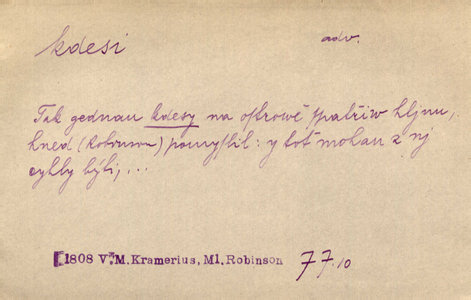 kdesi adv.
Tak gednau kdesy na ostrowě spatřiw hljnu,
hned (Robinson) pomyslil: y toť mohau z nj
cyhly býti, ...
[1808 V. M. Kramerius, Ml. Robinson 77.10